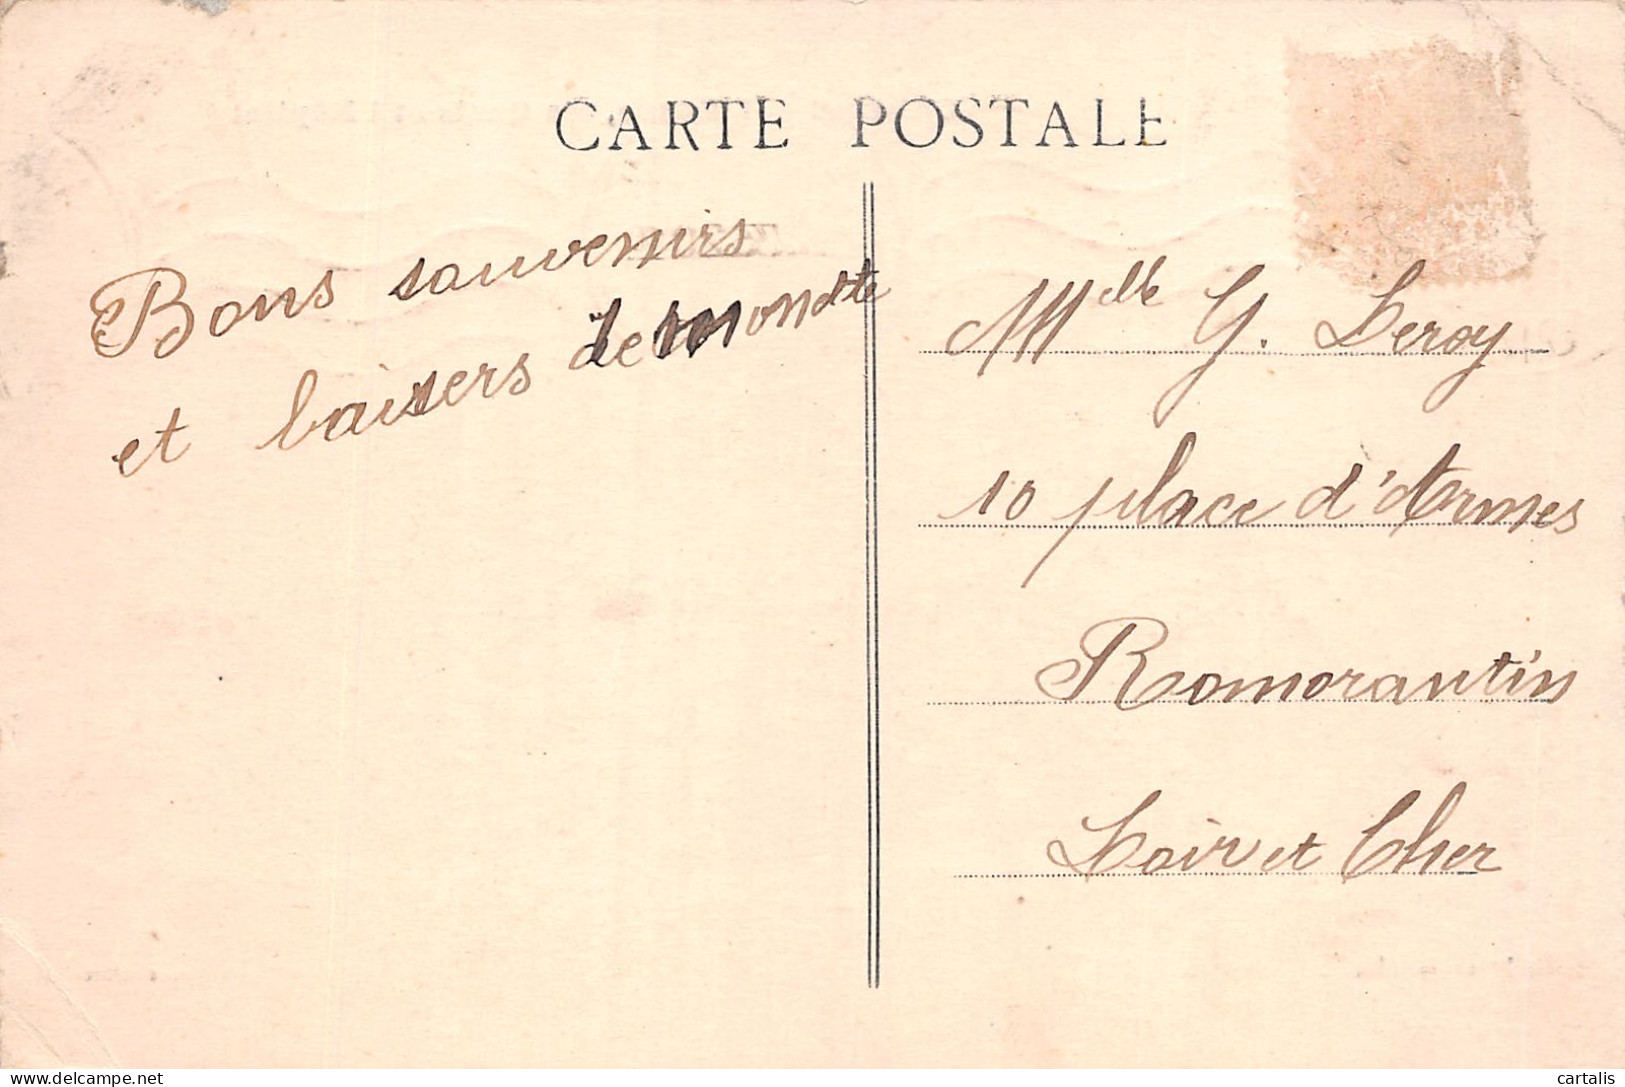 CARTE POSTALE
Bons souvenirs
et baisers de
Mlle G. Leroy
10 place d'Armes
Romorantin
Loir et Cher
www.delcampe.net
cartalis